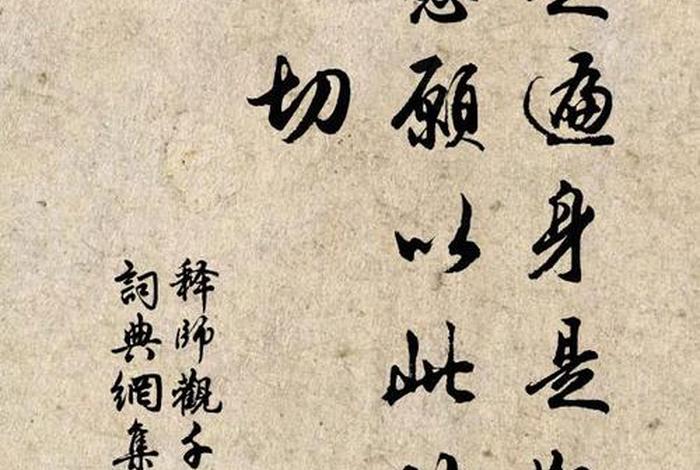 遍身是
願以此
切
释師觀千
詞典網集